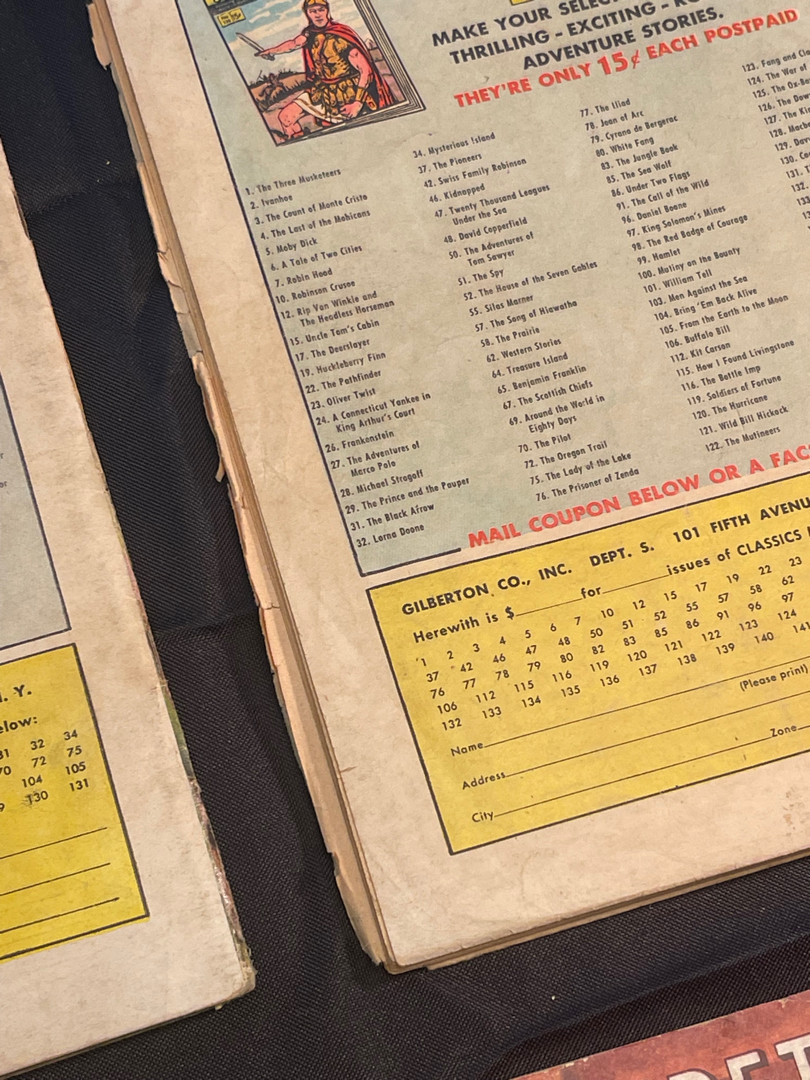 MAKE YOUR
THRILLING - EXCITING -
ADVENTURE STORIES.
THEY'RE ONLY 15¢ EACH POSTPAID
1. The Three Musketeers
2. Ivanhoe
3. The Count of Monte Cristo
4. The Last of the Mohicans
5. Moby Dick
6. A Tale of Two Cities
7. Robin Hood
10. Robinson Crusoe
12. Rip Van Winkle and
The Headless Horseman
15. Uncle Tom's Cabin
17. The Deerslayer
19. Huckleberry Finn
22. The Pathfinder
23. Oliver Twist
24. A Connecticut Yankee in
King Arthur's Court
26. Frankenstein
27. The Adventures of
Marco Polo
28. Michael Strogoff
29. The Prince and the Pauper
31. The Black Arrow
32. Lorna Doone
34. Mysterious Island
37. The Pioneers
42. Swiss Family Robinson
46. Kidnapped
47. Twenty Thousand Leagues
Under the Sea
48. David Copperfield
50. The Adventures of
Tom Sawyer
51. The Spy
52. The House of the Seven Gables
55. Silas Marner
57. The Song of Hiawatha
58. The Prairie
62. Western Stories
64. Treasure Island
65. Benjamin Franklin
67. The Scottish Chiefs
69. Around the World in
Eighty Days
70. The Pilot
72. The Oregon Trail
75. The Lady of the Lake
76. The Prisoner of Zenda
77. The Iliad
78. Joan of Arc
79. Cyrano de Bergerac
80. White Fang
83. The Jungle Book
85. The Sea Wolf
86. Under Two Flags
91. The Call of the Wild
96. Daniel Boone
97. King Solomon's Mines
98. The Red Badge of Courage
99. Hamlet
100. Mutiny on the Bounty
101. William Tell
103. Men Against the Sea
104. Bring 'Em Back Alive
105. From the Earth to the Moon
106. Buffalo Bill
112. Kit Carson
115. How I Found Livingstone
116. The Bottle Imp
119. Soldiers of Fortune
120. The Hurricane
121. Wild Bill Hickock
122. The Mutineers
123. Fang and
124. The War of
125. The
126. The
127. The
128.
129.
130.
131.
132.
MAIL COUPON BELOW OR A
GILBERTON CO., INC. DEPT. S. 101 FIFTH
Herewith is $ for issues of CLASSICS
1 2 3 4 5 6 7 10 12 15 17 19 22 23
37 42 46 47 48 50 51 52 55 57 58 62
76 77 78 79 80 82 83 85 86 91 96 97
106 112 115 116 119 120 121 122 123 124
132 133 134 135 136 137 138 139 140
(Please print)
Name
Address
City Zone
Y.
below:
31 32 34
70 72 75
104 105
130 131